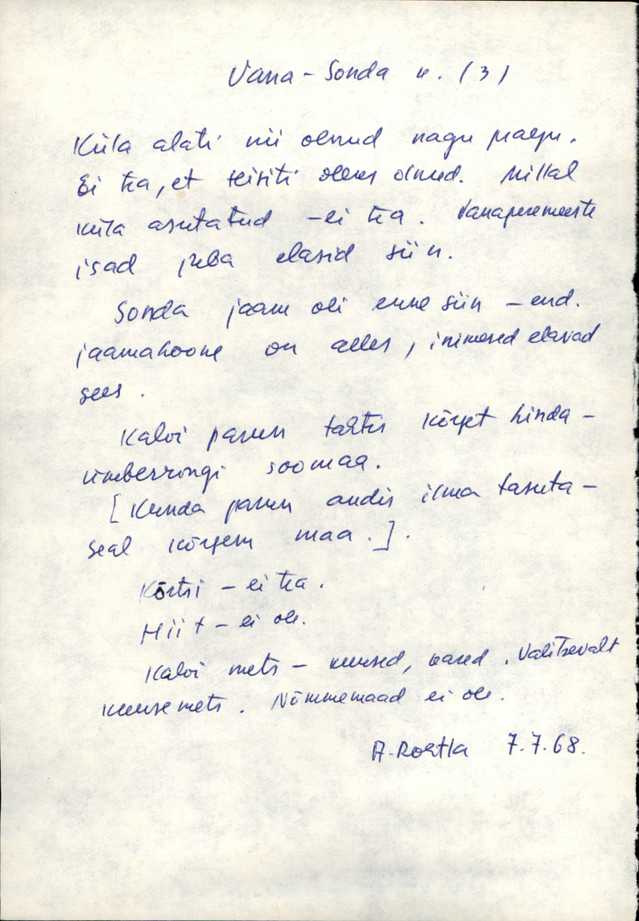 Vana-Sonda k. (3)
Küla alati nii olnud nagu praegu.
Ei tea, et teisiti oleks olnud. Millal
küla asutatud - ei tea. Vanaperemeeste
isad juba elasid siin.
Sonda jaam oli enne siin - end.
jaamahoone on alles, inimesed elavad
sees.
Kalvi parun tahtis kõrget hinda -
ümberringi soomaa.
[Kunda parun andis ilma tasuta -
seal kõrgem maa.].
Kõrtsi - ei tea.
Hiit - ei ole.
Kalvi mets - kuused, kased. Valitsevalt
kuusemets. Nõmmemaad ei ole.
7.7.68.